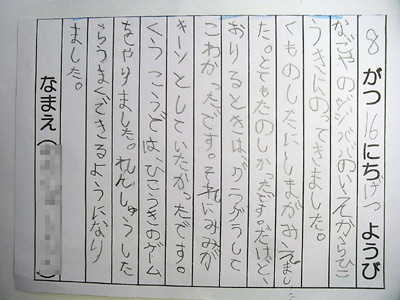 8がつ16にちげつようび
なごやのジジババのいえからひこ
うきにのってきました。
くものしたにしまがみえまし
た。とてもたのしかったです。だけど、
おりるときは、グラグラして
こわかったです。それにみみが
キーンとしていたかったです。
くうこうでは、ひこうきのゲーム
をやりました。れんしゅうした
らうまくできるようになり
ました。
なまえ（　　　）